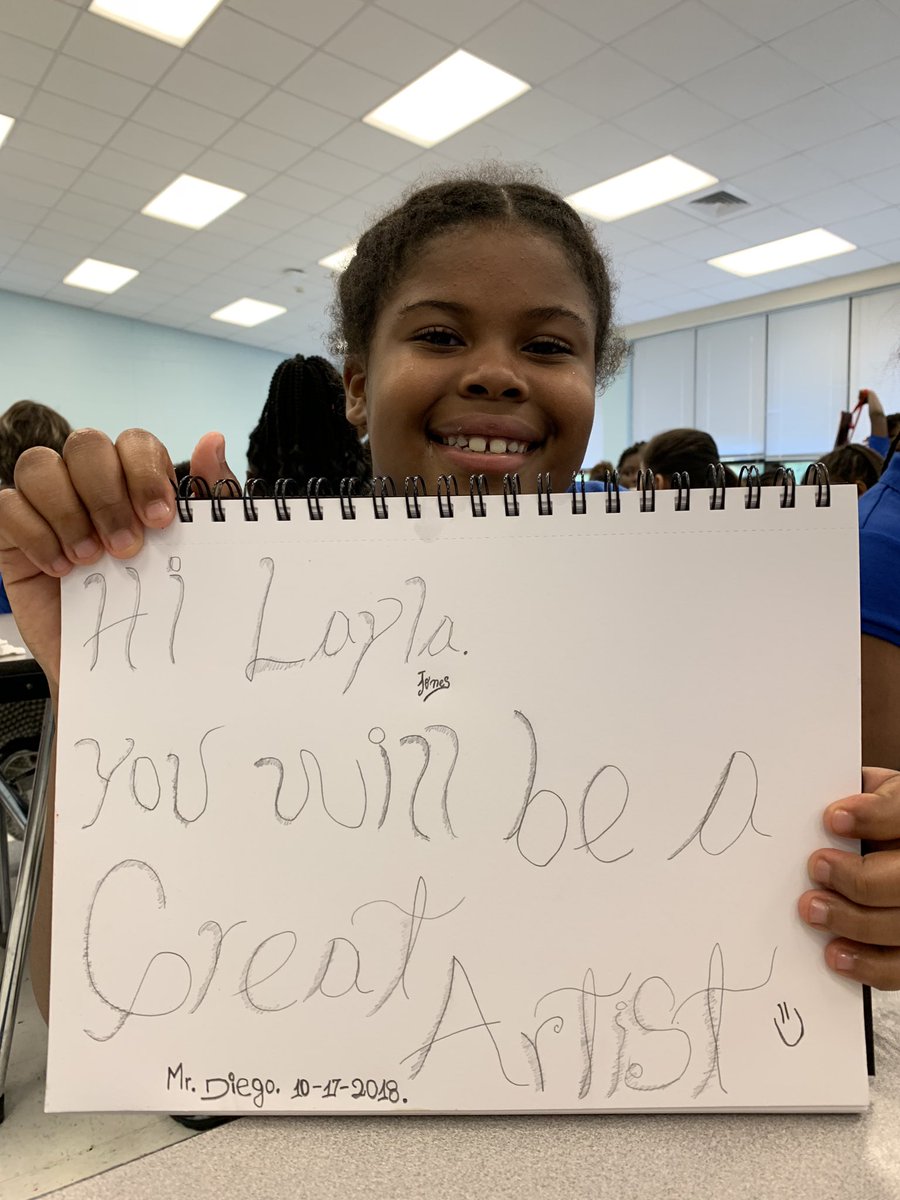 Hi Layla.
Jones
You will be a
Great Artist
Mr. Diego. 10-17-2018.